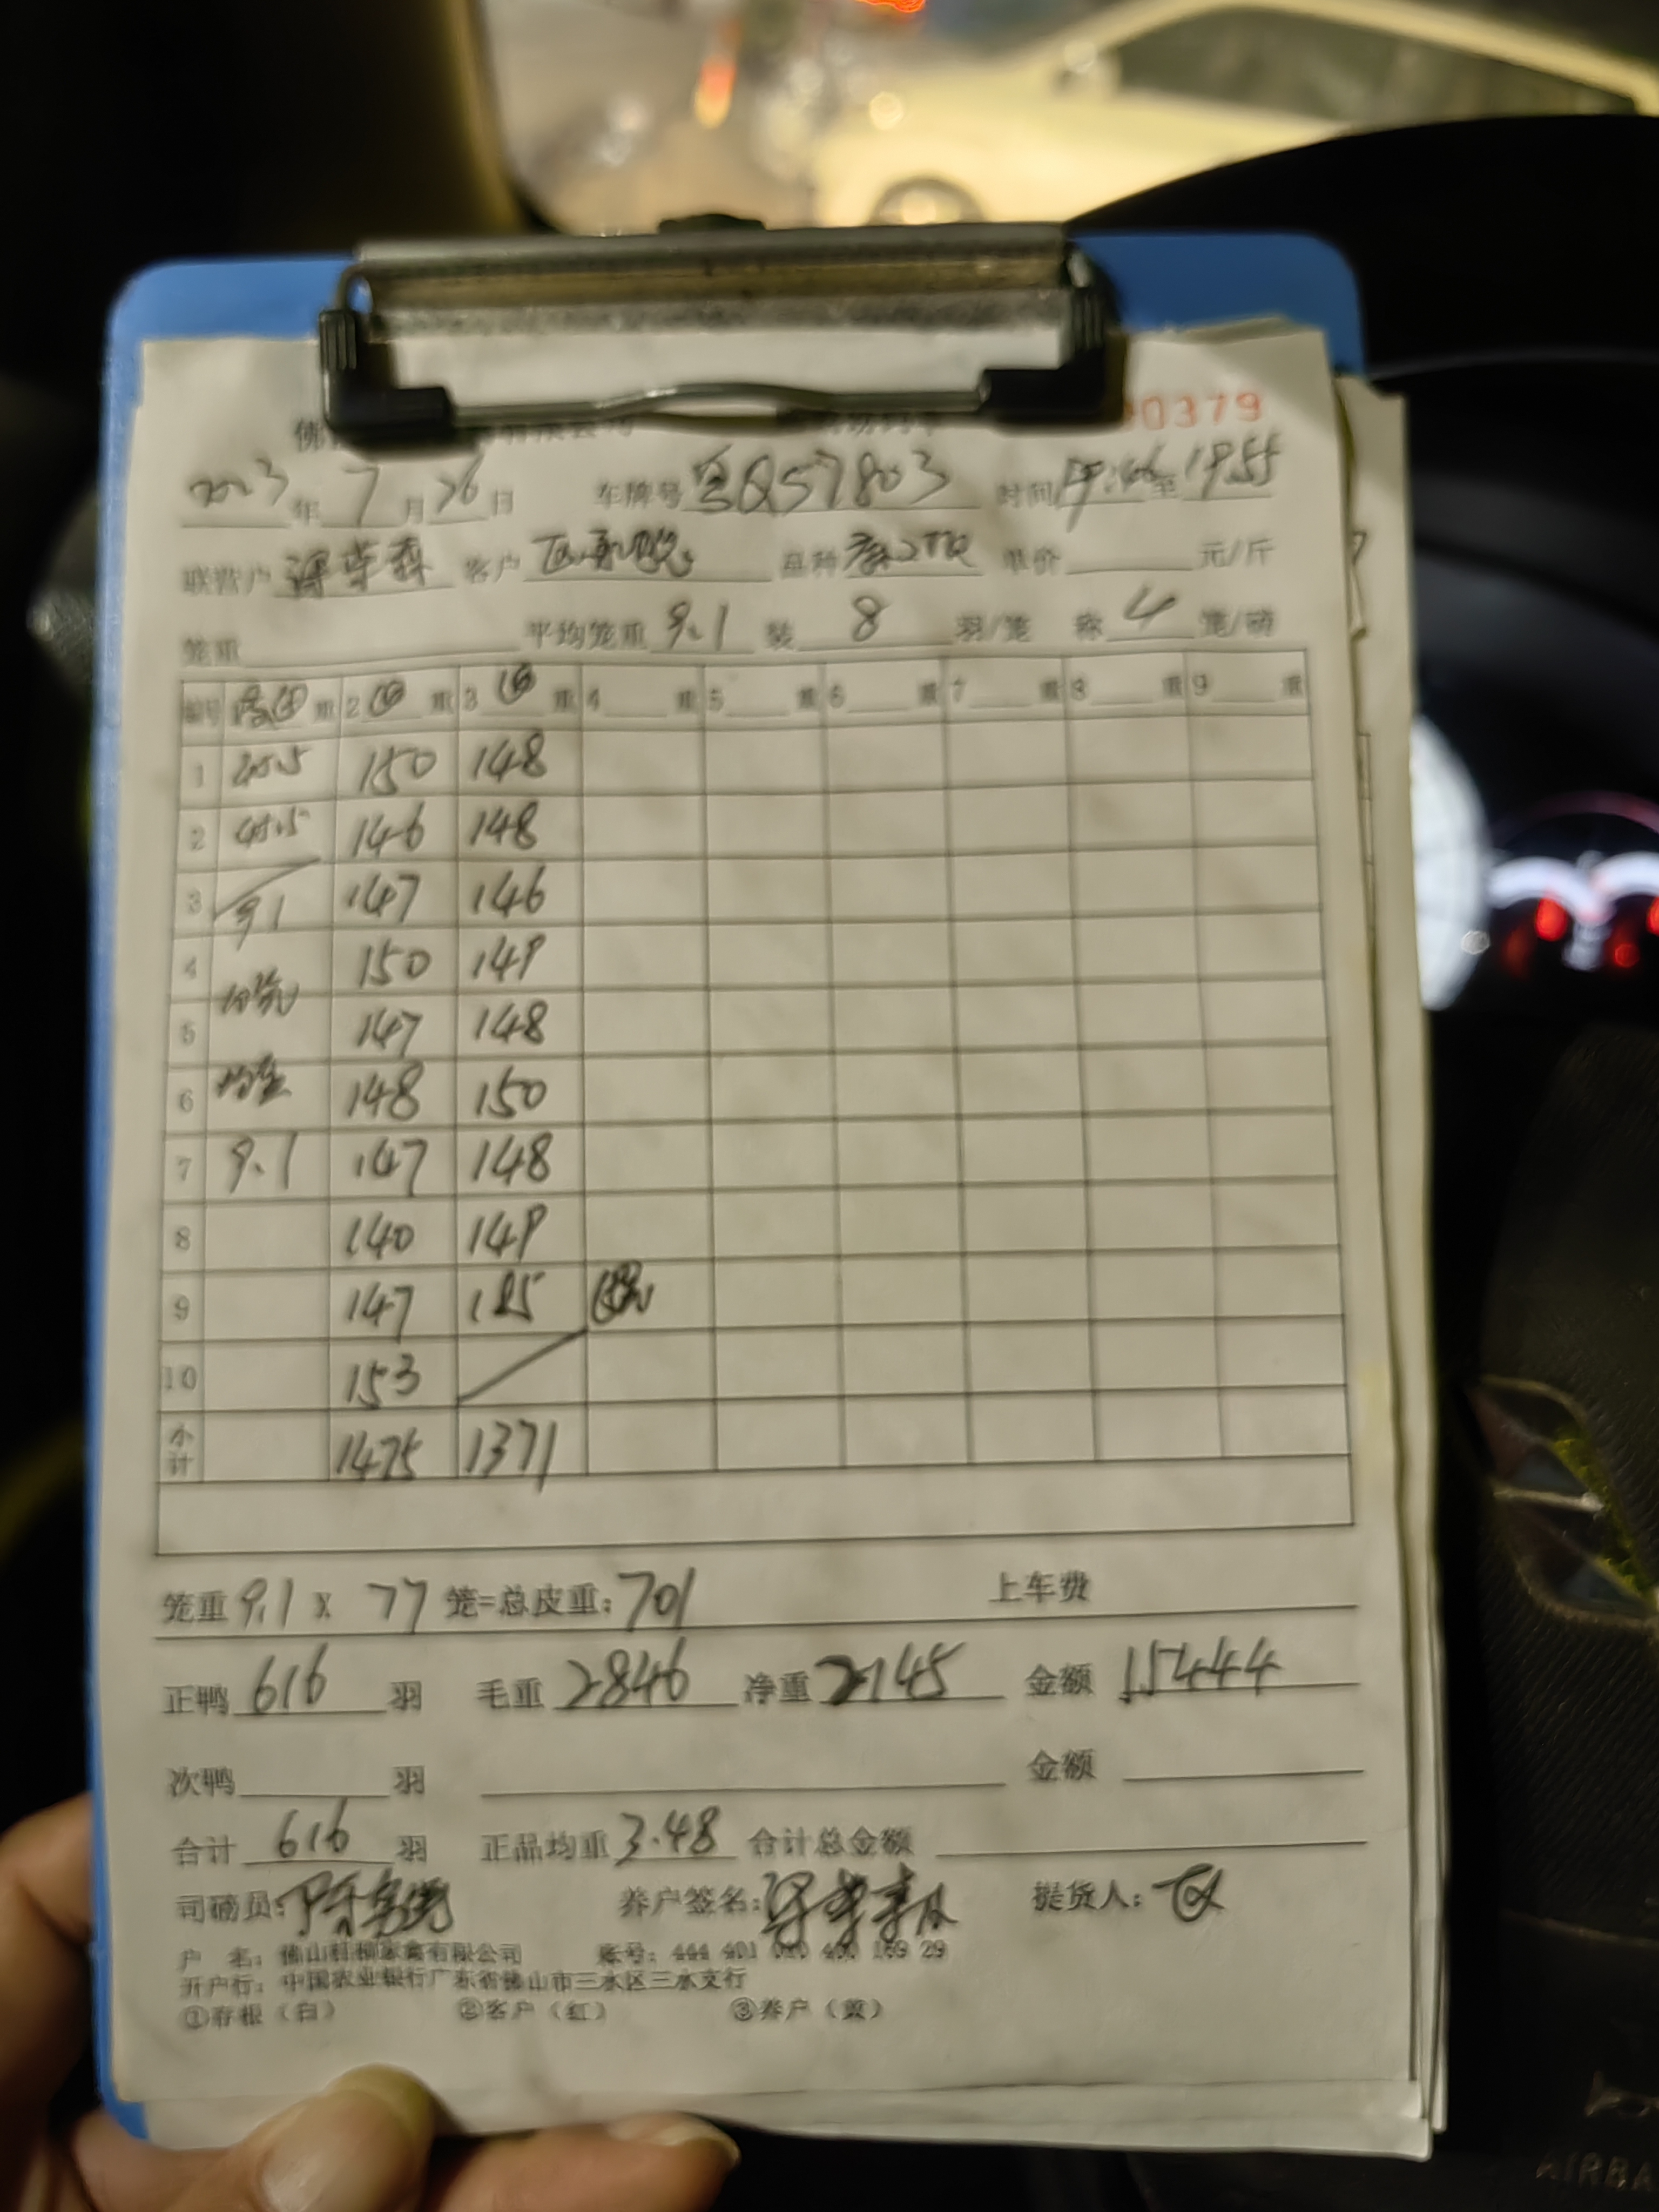 0379
2023年7月26日 车牌号粤Q57803 时间19:46至19:55
联营户 客户 品种 单价 元/斤
笼重 平均笼重9.1 装8羽/笼 称4笼/磅
编号 重 2 重 3 重 4 重 5 重 6 重 7 重 8 重 9 重
1 150 148
2 45.5 146 148
3 9.1 147 146
4 150 149
5 147 148
6 均重 148 150
7 9.1 147 148
8 140 149
9 147 185
10 153
小计 1475 1371
笼重9.1X77笼=总皮重:701 上车费
正鸭616羽 毛重2846 净重2145 金额15444
次鸭 羽 金额
合计616羽 正品均重3.48 合计总金额
司磅员: 养户签名: 提货人:
户 名: 佛山 家禽有限公司 账号: 444 401 169 29
开户行: 中国农业银行广东省佛山市三水区三水支行
①存根(白) ②客户(红) ③养户(黄)